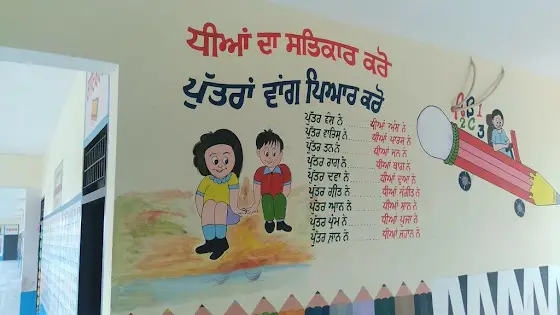 ਧੀਆਂ ਦਾ ਸਤਿਕਾਰ ਕਰੋ
ਪੁੱਤਰਾਂ ਵਾਂਗ ਪਿਆਰ ਕਰੋ
ਪੁੱਤਰ ਵੰਸ਼ ਨੇ ........... ਧੀਆਂ ਅੰਸ਼ ਨੇ
ਪੁੱਤਰ ਵਾਰਿਸ ਨੇ ........... ਧੀਆਂ ਪਾਰਸ ਨੇ
ਪੁੱਤਰ ਤਨ ਨੇ ........... ਧੀਆਂ ਮਨ ਨੇ
ਪੁੱਤਰ ਰਾਗ ਨੇ ........... ਧੀਆਂ ਬਾਗ ਨੇ
ਪੁੱਤਰ ਦਵਾ ਨੇ ........... ਧੀਆਂ ਦੁਆ ਨੇ
ਪੁੱਤਰ ਗੀਤ ਨੇ ........... ਧੀਆਂ ਸੰਗੀਤ ਨੇ
ਪੁੱਤਰ ਆਨ ਨੇ ........... ਧੀਆਂ ਸ਼ਾਨ ਨੇ
ਪੁੱਤਰ ਪ੍ਰੇਮ ਨੇ ........... ਧੀਆਂ ਪੂਜਾ ਨੇ
ਪੁੱਤਰ ਜਾਨ ਨੇ ........... ਧੀਆਂ ਜਹਾਨ ਨੇ
A B 1
2 C 3